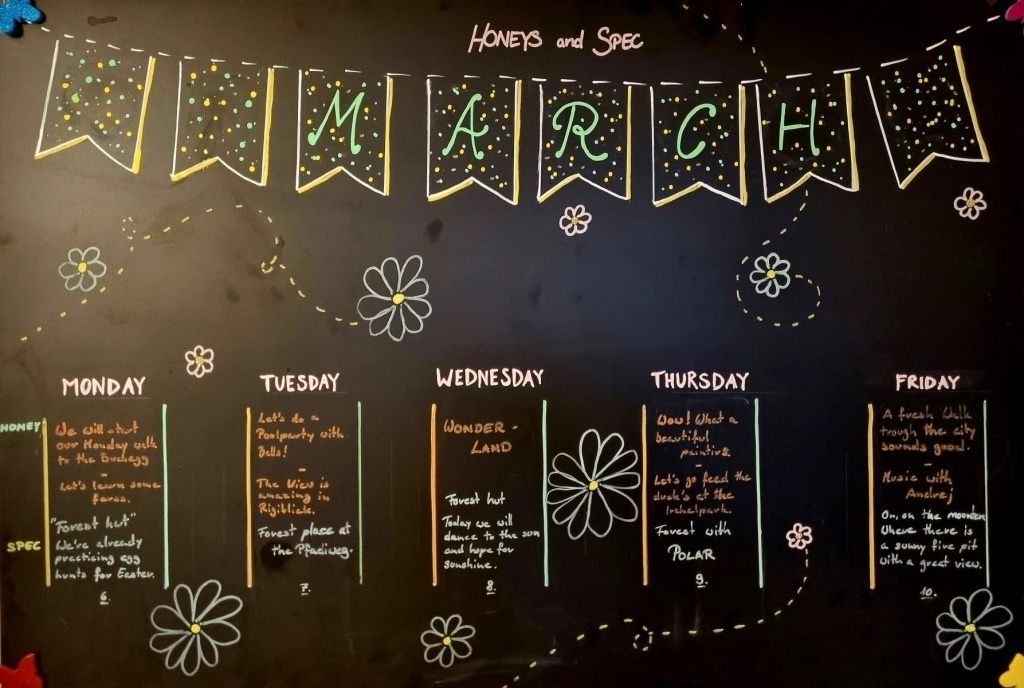 HONEYS and SPEC
MARCH
MONDAY
HONEY
We will start
our Monday walk
to the Buchegg
-
Let's learn some
faces.
SPEC
"Forest hut"
We're already
practicing egg
hunts for Easter.
6.
TUESDAY
Let's do a
Poolparty with
Balls!
-
The View is
amazing in
Rigiblick.
Forest place at
the Pfadiweg.
7.
WEDNESDAY
WONDER-
LAND
Forest hut
Today we will
dance to the sun
and hope for
sunshine.
8.
THURSDAY
Wow! What a
beautiful
painting
-
Let's go feed the
duck's at the
Irchelpark.
Forest with
POLAR
9.
FRIDAY
A fresh Walk
trough the city
sounds good.
-
Music with
Andrej
On, on the mountain
Where there is
a sunny fire pit
with a great view.
10.